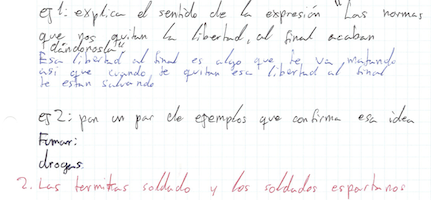 ej 1: explica el sentido de la expresión "Las normas
que nos quitan la libertad, al final acaban
dándonosla"
Esa libertad al final es algo que te va matando
asi que cuando te quitan esa libertad al final
te estan salvando
ej 2: pon un par de ejemplos que confirma esa idea
Fumar:
drogas.
2. Las termitas soldado y los soldados espartanos